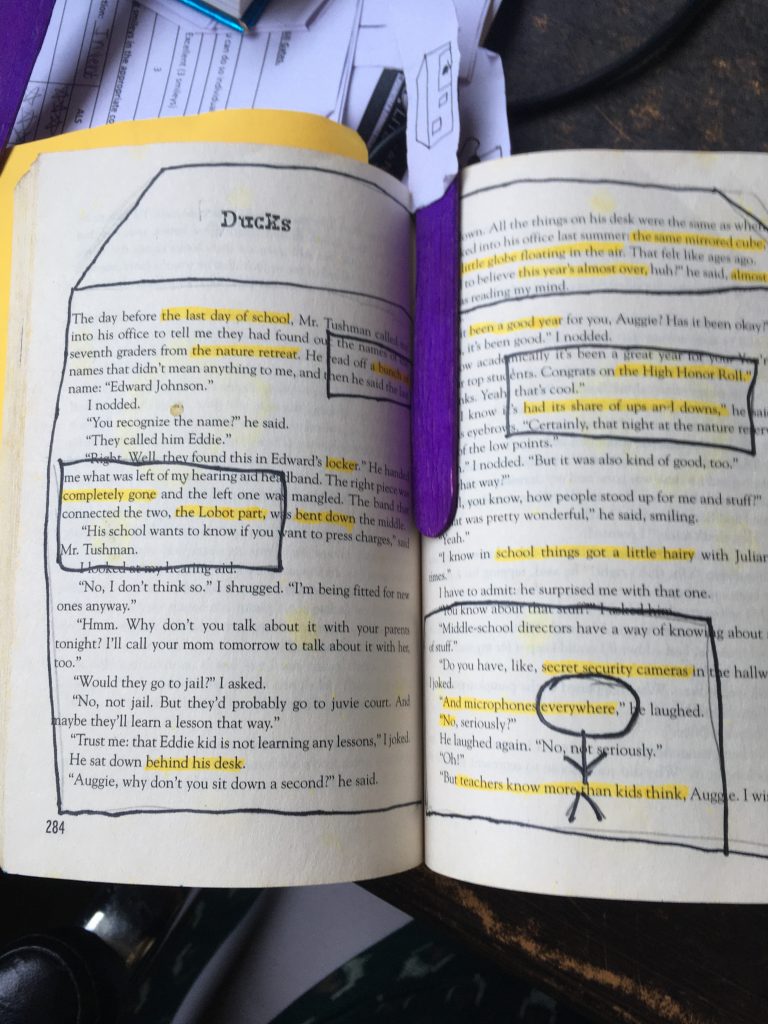 Ducks
The day before the last day of school, Mr. Tushman called me
into his office to tell me they had found out the names of the
seventh graders from the nature retreat. He read off a bunch of
names that didn't mean anything to me, and then he said the last
name: "Edward Johnson."
I nodded.
"You recognize the name?" he said.
"They called him Eddie."
"Right. Well, they found this in Edward's locker." He handed
me what was left of my hearing aid headband. The right piece was
completely gone and the left one was mangled. The band that
connected the two, the Lobot part, was bent down the middle.
"His school wants to know if you want to press charges," said
Mr. Tushman.
I looked at my hearing aid.
"No, I don't think so." I shrugged. "I'm being fitted for new
ones anyway."
"Hmm. Why don't you talk about it with your parents
tonight? I'll call your mom tomorrow to talk about it with her,
too."
"Would they go to jail?" I asked.
"No, not jail. But they'd probably go to juvie court. And
maybe they'll learn a lesson that way."
"Trust me: that Eddie kid is not learning any lessons," I joked.
He sat down behind his desk.
"Auggie, why don't you sit down a second?" he said.
284
own. All the things on his desk were the same as when
ed into his office last summer: the same mirrored cube,
little globe floating in the air. That felt like ages ago.
to believe this year's almost over, huh?" he said, almost
as reading my mind.
been a good year for you, Auggie? Has it been okay?"
it's been good." I nodded.
academically it's been a great year for you.
top students. Congrats on the High Honor Roll."
nks. Yeah that's cool."
I know it's had its share of ups and downs," he
eyebrows. "Certainly, that night at the nature
of the low points."
" I nodded. "But it was also kind of good, too."
hat way?"
you know, how people stood up for me and stuff?"
at was pretty wonderful," he said, smiling.
"Yeah."
"I know in school things got a little hairy with Julian
times."
I have to admit: he surprised me with that one.
"You know about that stuff?" I asked him.
"Middle-school directors have a way of knowing about
of stuff."
"Do you have, like, secret security cameras in the
I joked.
"And microphones everywhere," he laughed.
"No, seriously?"
He laughed again. "No, not seriously."
"Oh!"
"But teachers know more than kids think, Auggie. I